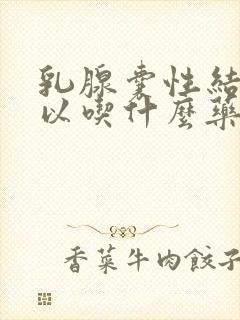 乳腺囊性結
以喫什麼藥
香菜牛肉餃子